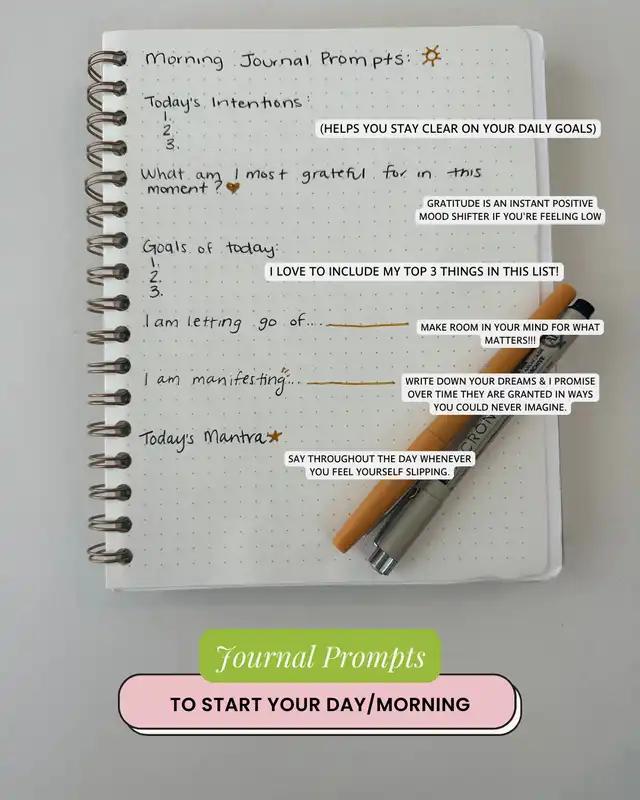 Morning Journal Prompts:
Today's Intentions:
1.
2.
3.
(HELPS YOU STAY CLEAR ON YOUR DAILY GOALS)
What am I most grateful for in this
moment?
GRATITUDE IS AN INSTANT POSITIVE
MOOD SHIFTER IF YOU'RE FEELING LOW
Goals of today:
1.
2.
3.
I LOVE TO INCLUDE MY TOP 3 THINGS IN THIS LIST!
I am letting go of....
MAKE ROOM IN YOUR MIND FOR WHAT
MATTERS!!!
I am manifesting...
WRITE DOWN YOUR DREAMS & I PROMISE
OVER TIME THEY ARE GRANTED IN WAYS
YOU COULD NEVER IMAGINE.
Today's Mantra
SAY THROUGHOUT THE DAY WHENEVER
YOU FEEL YOURSELF SLIPPING.
Journal Prompts
TO START YOUR DAY/MORNING